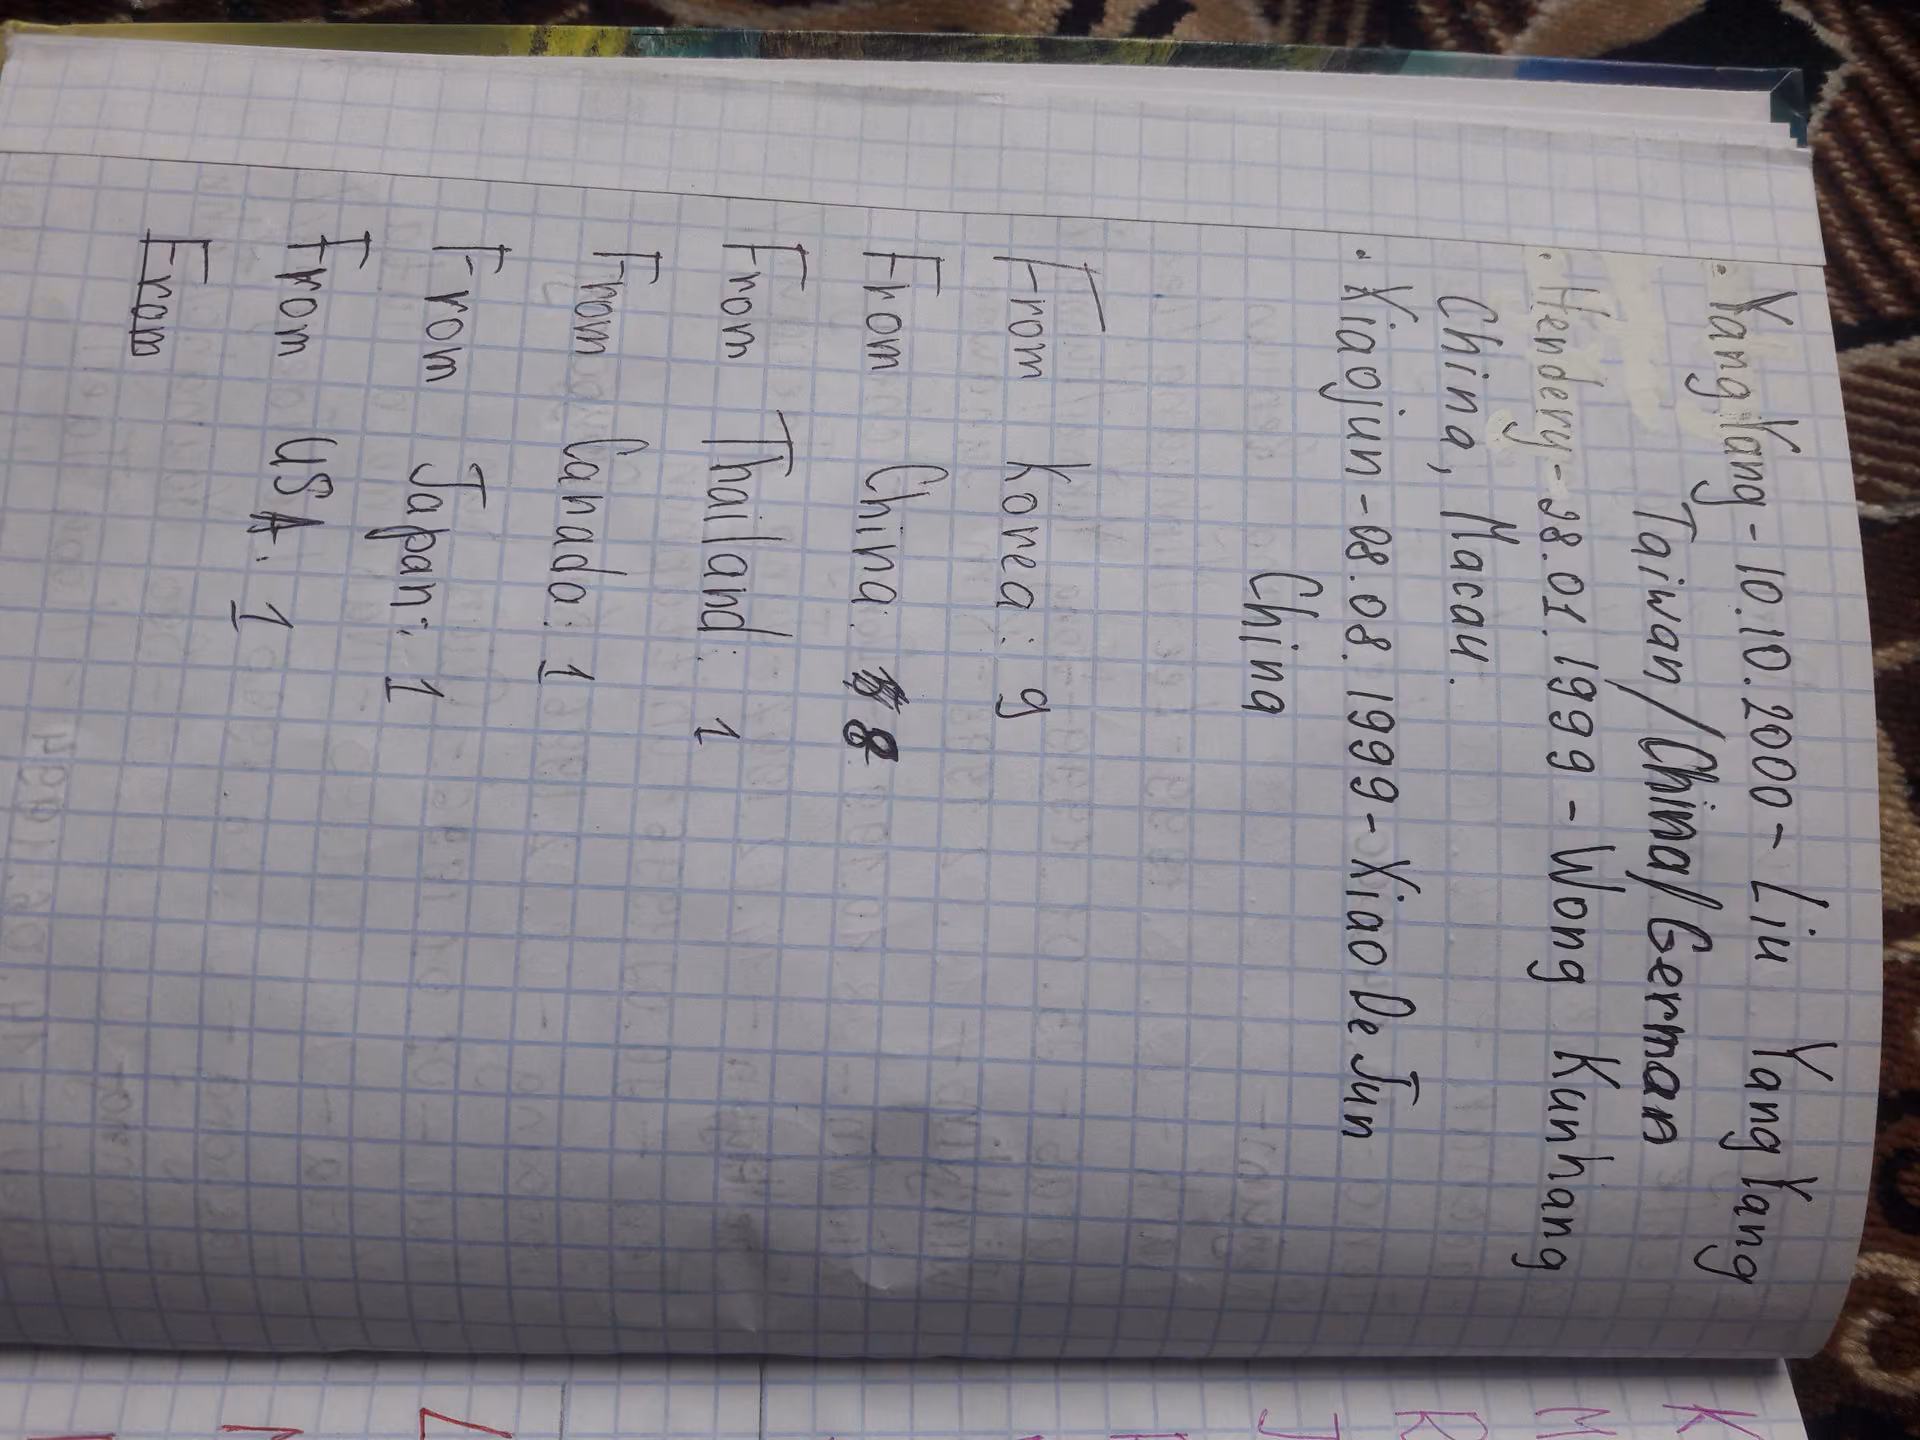 . YangYang - 10.10.2000 - Liu YangYang
Taiwan/China/German
. Hendery - 28.01.1999 - Wong Kunhang
China, Macau.
. Xiaojun - 08.08.1999 - Xiao De Jun
China
From Korea: 9
From China: 8
From Thailand: 1
From Canada: 1
From Japan: 1
From USA: 1
From
K
M
R
J